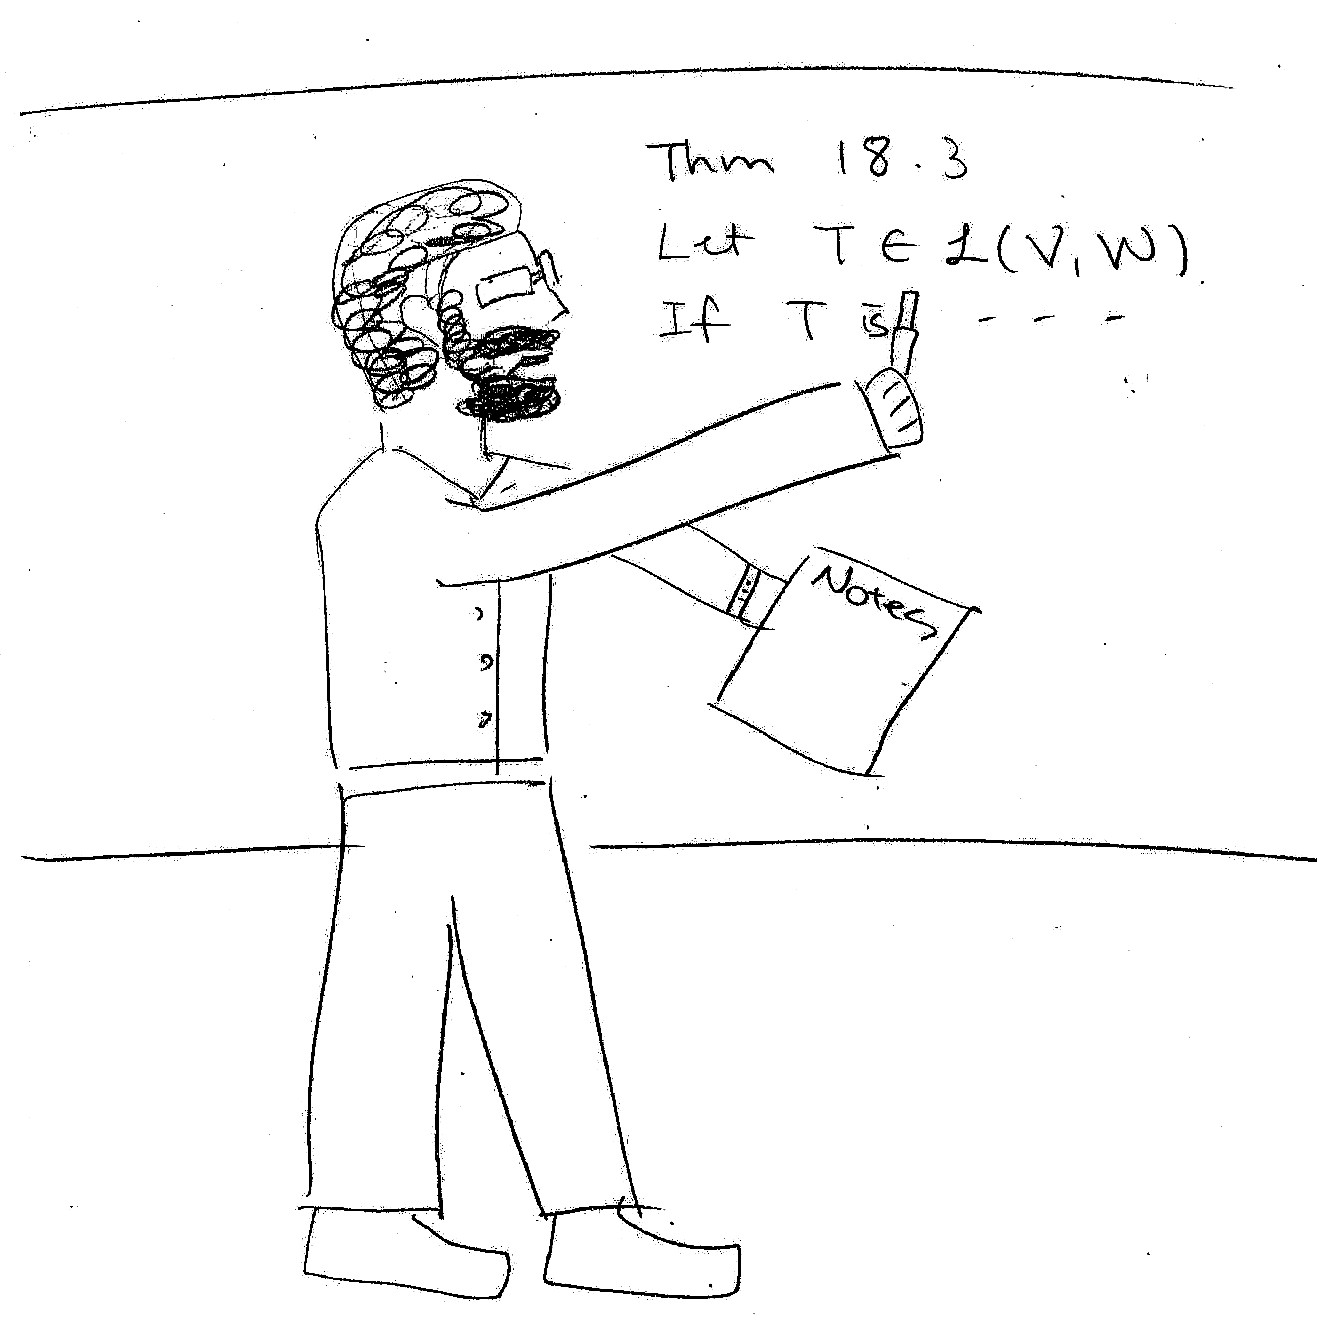 Thm 18.3
Let T ∈ ℒ(V, W)
If T is - - -
Notes